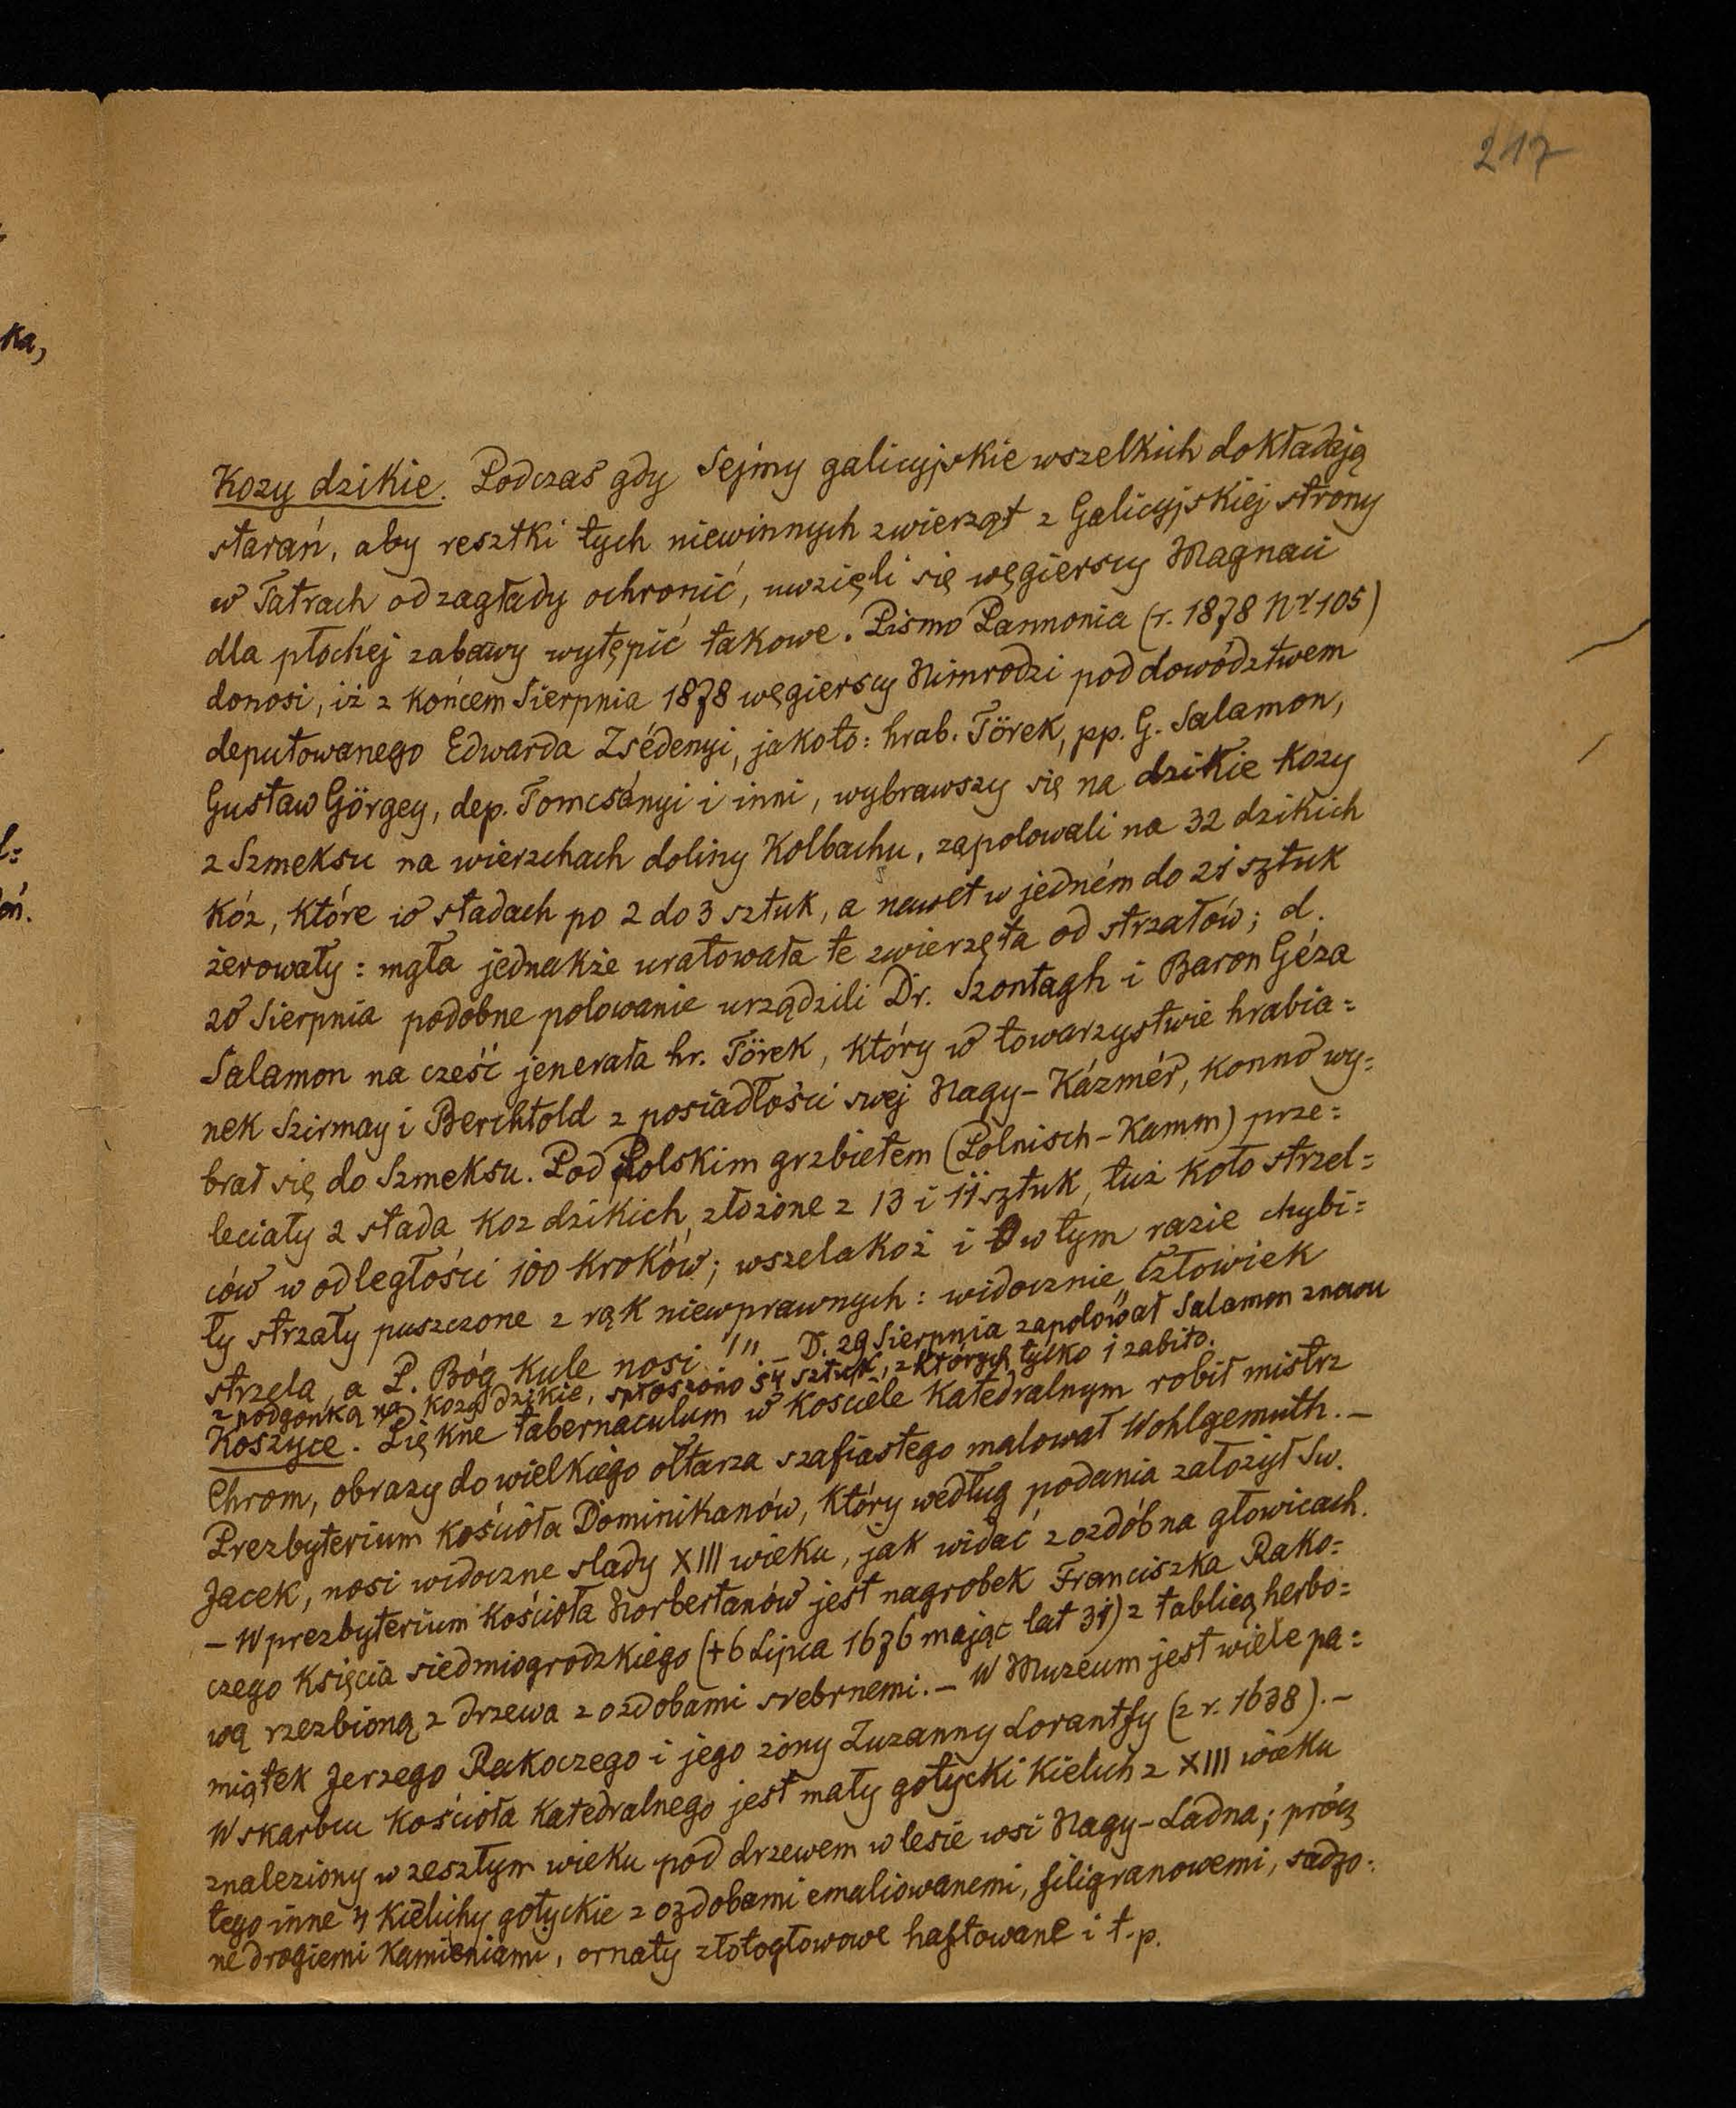 217
ka,
ł=
oń.
Kozy dzikie. Podczas gdy Sejmy galicyjskie wszelkich dokładają
starań, aby resztki tych niewinnych zwierząt z Galicyjskiej strony
w Tatrach od zagłady ochronić, uwzięli się węgierscy Magnaci
dla płochej zabawy wytępić takowe. Pismo Pannonia (r. 1878 Nr 105)
donosi, iż z końcem Sierpnia 1878 węgierscy Nimrodzi pod dowództwem
deputowanego Edwarda Zsédenyi, jakoto: hrab. Török, pp. G. Salamon,
Gustaw Görgey, dep. Tomcsányi i inni, wybrawszy się na dzikie kozy
z Szmeksu na wierzchach doliny Kolbachu, zapolowali na 32 dzikich
kóz, które w stadach po 2 do 3 sztuk, a nawet w jedném do 21 sztuk
żerowały: mgła jednakże uratowała te zwierzęta od strzałów; d.
20 Sierpnia podobne polowanie urządzili Dr. Szontagh i Baron Géza
Salamon na cześć jenerała hr. Török, który w towarzystwie hrabia=
nek Szirmay i Berchtold z posiadłości swej Nagy-Kázmér, konno wy=
brał się do Szmeksu. Pod Polskim grzbietem (Polnisch-Kamm) prze=
leciały 2 stada koz dzikich, złożone z 13 i 11 sztuk, tuż koło strzel=
ców w odległości 100 kroków; wszelakoż i w tym razie chybi=
ły strzały puszczone z rąk niewprawnych: widocznie „Człowiek
strzela, a P. Bóg kule nosi!" – D. 29 Sierpnia zapolował Salamon znowu
z podgonką na kozy dzikie, spłoszono 54 sztuk, z których tylko 1 zabito.
Koszyce. Piękne tabernaculum w kosciele katedralnym robił mistrz
Chrom, obrazy do wielkiego ołtarza szafiastego malował Wohlgemuth. –
Prezbyterium kościoła Dominikanów, który według podania założył Św.
Jacek, nosi widoczne slady XIII wieku, jak widać z ozdób na głowicach.
– W prezbyterium kościoła Norbertanów jest nagrobek Franciszka Rako=
czego Księcia siedmiogrodzkiego (+ 6 Lipca 1676 mając lat 31) z tablicą herbo=
wą rzezbioną z drzewa z ozdobami srebrnemi. – W Muzeum jest wiele pa=
miątek Jerzego Rakoczego i jego żony Zuzanny Lorantfy (z r. 1638). –
W skarbcu kościoła katedralnego jest mały gotycki kielich z XIII wieku
znaleziony w zeszłym wieku pod drzewem w lesie wsi Nagy-Ladna; prócz
tego inne 4 kielichy gotyckie z ozdobami emaliowanemi, filigranowemi, sadzo=
ne drogiemi kamieniami, ornaty złotogłowowe haftowane i t.p.